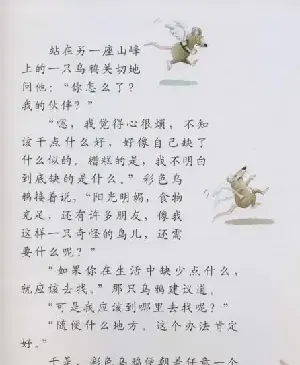 站在另一座山峰
上的一只乌鸦关切地
问他：“你怎么了？
我的伙伴？”
“嗯，我觉得心很烦，不知
该干点什么好，好像自己缺了
什么似的。糟糕的是，我不明白
到底缺的是什么。”彩色乌
鸦接着说，“阳光明媚，食物
充足，还有许多朋友，像我
这样一只奇怪的鸟儿，还需
要什么呢？”
“如果你在生活中缺少点什么，
就应该去找。”那只乌鸦建议道。
“可是我应该到哪里去找呢？”
“随便什么地方。这个办法肯定
好。”
于是，彩色乌鸦便朝着任意一个